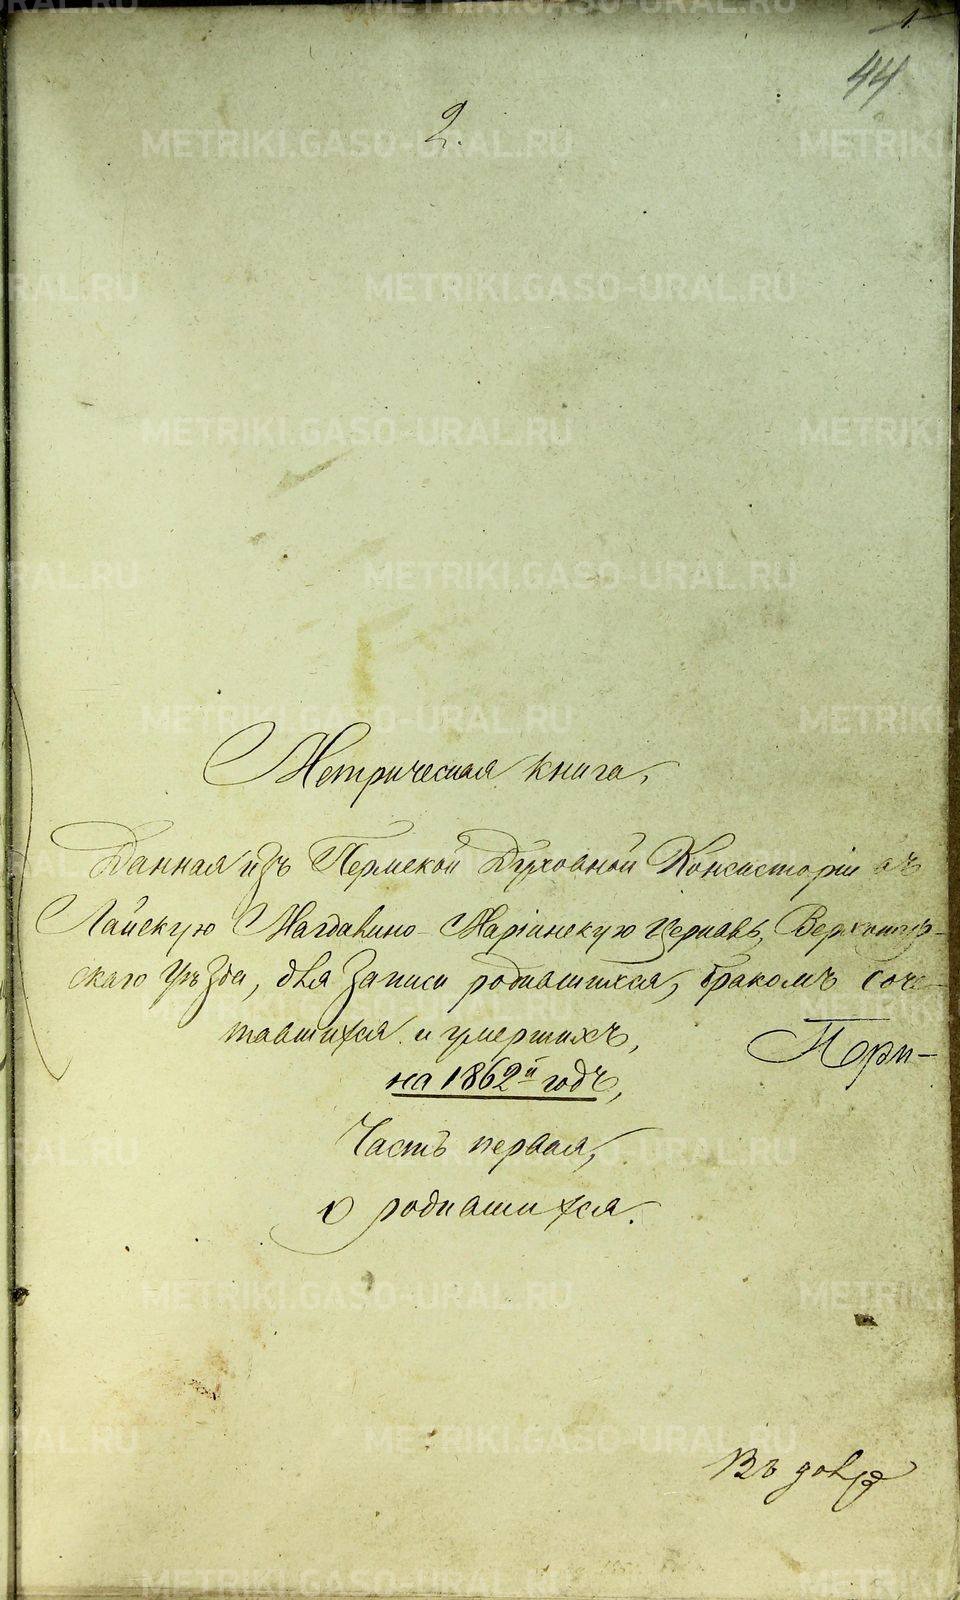 1
44
2.
Метрическая книга,
Данная изъ Пермской Духовной Консисторіи въ
Лайскую Магдалино-Маріинскую церковь, Верхотур-
скаго Уѣзда, для записи родившихся, бракомъ соче-
тавшихся и умершихъ,
Пери-
на 1862й годъ,
Часть первая,
о родившихся.
Въ
METRIKI.GASO-URAL.RU